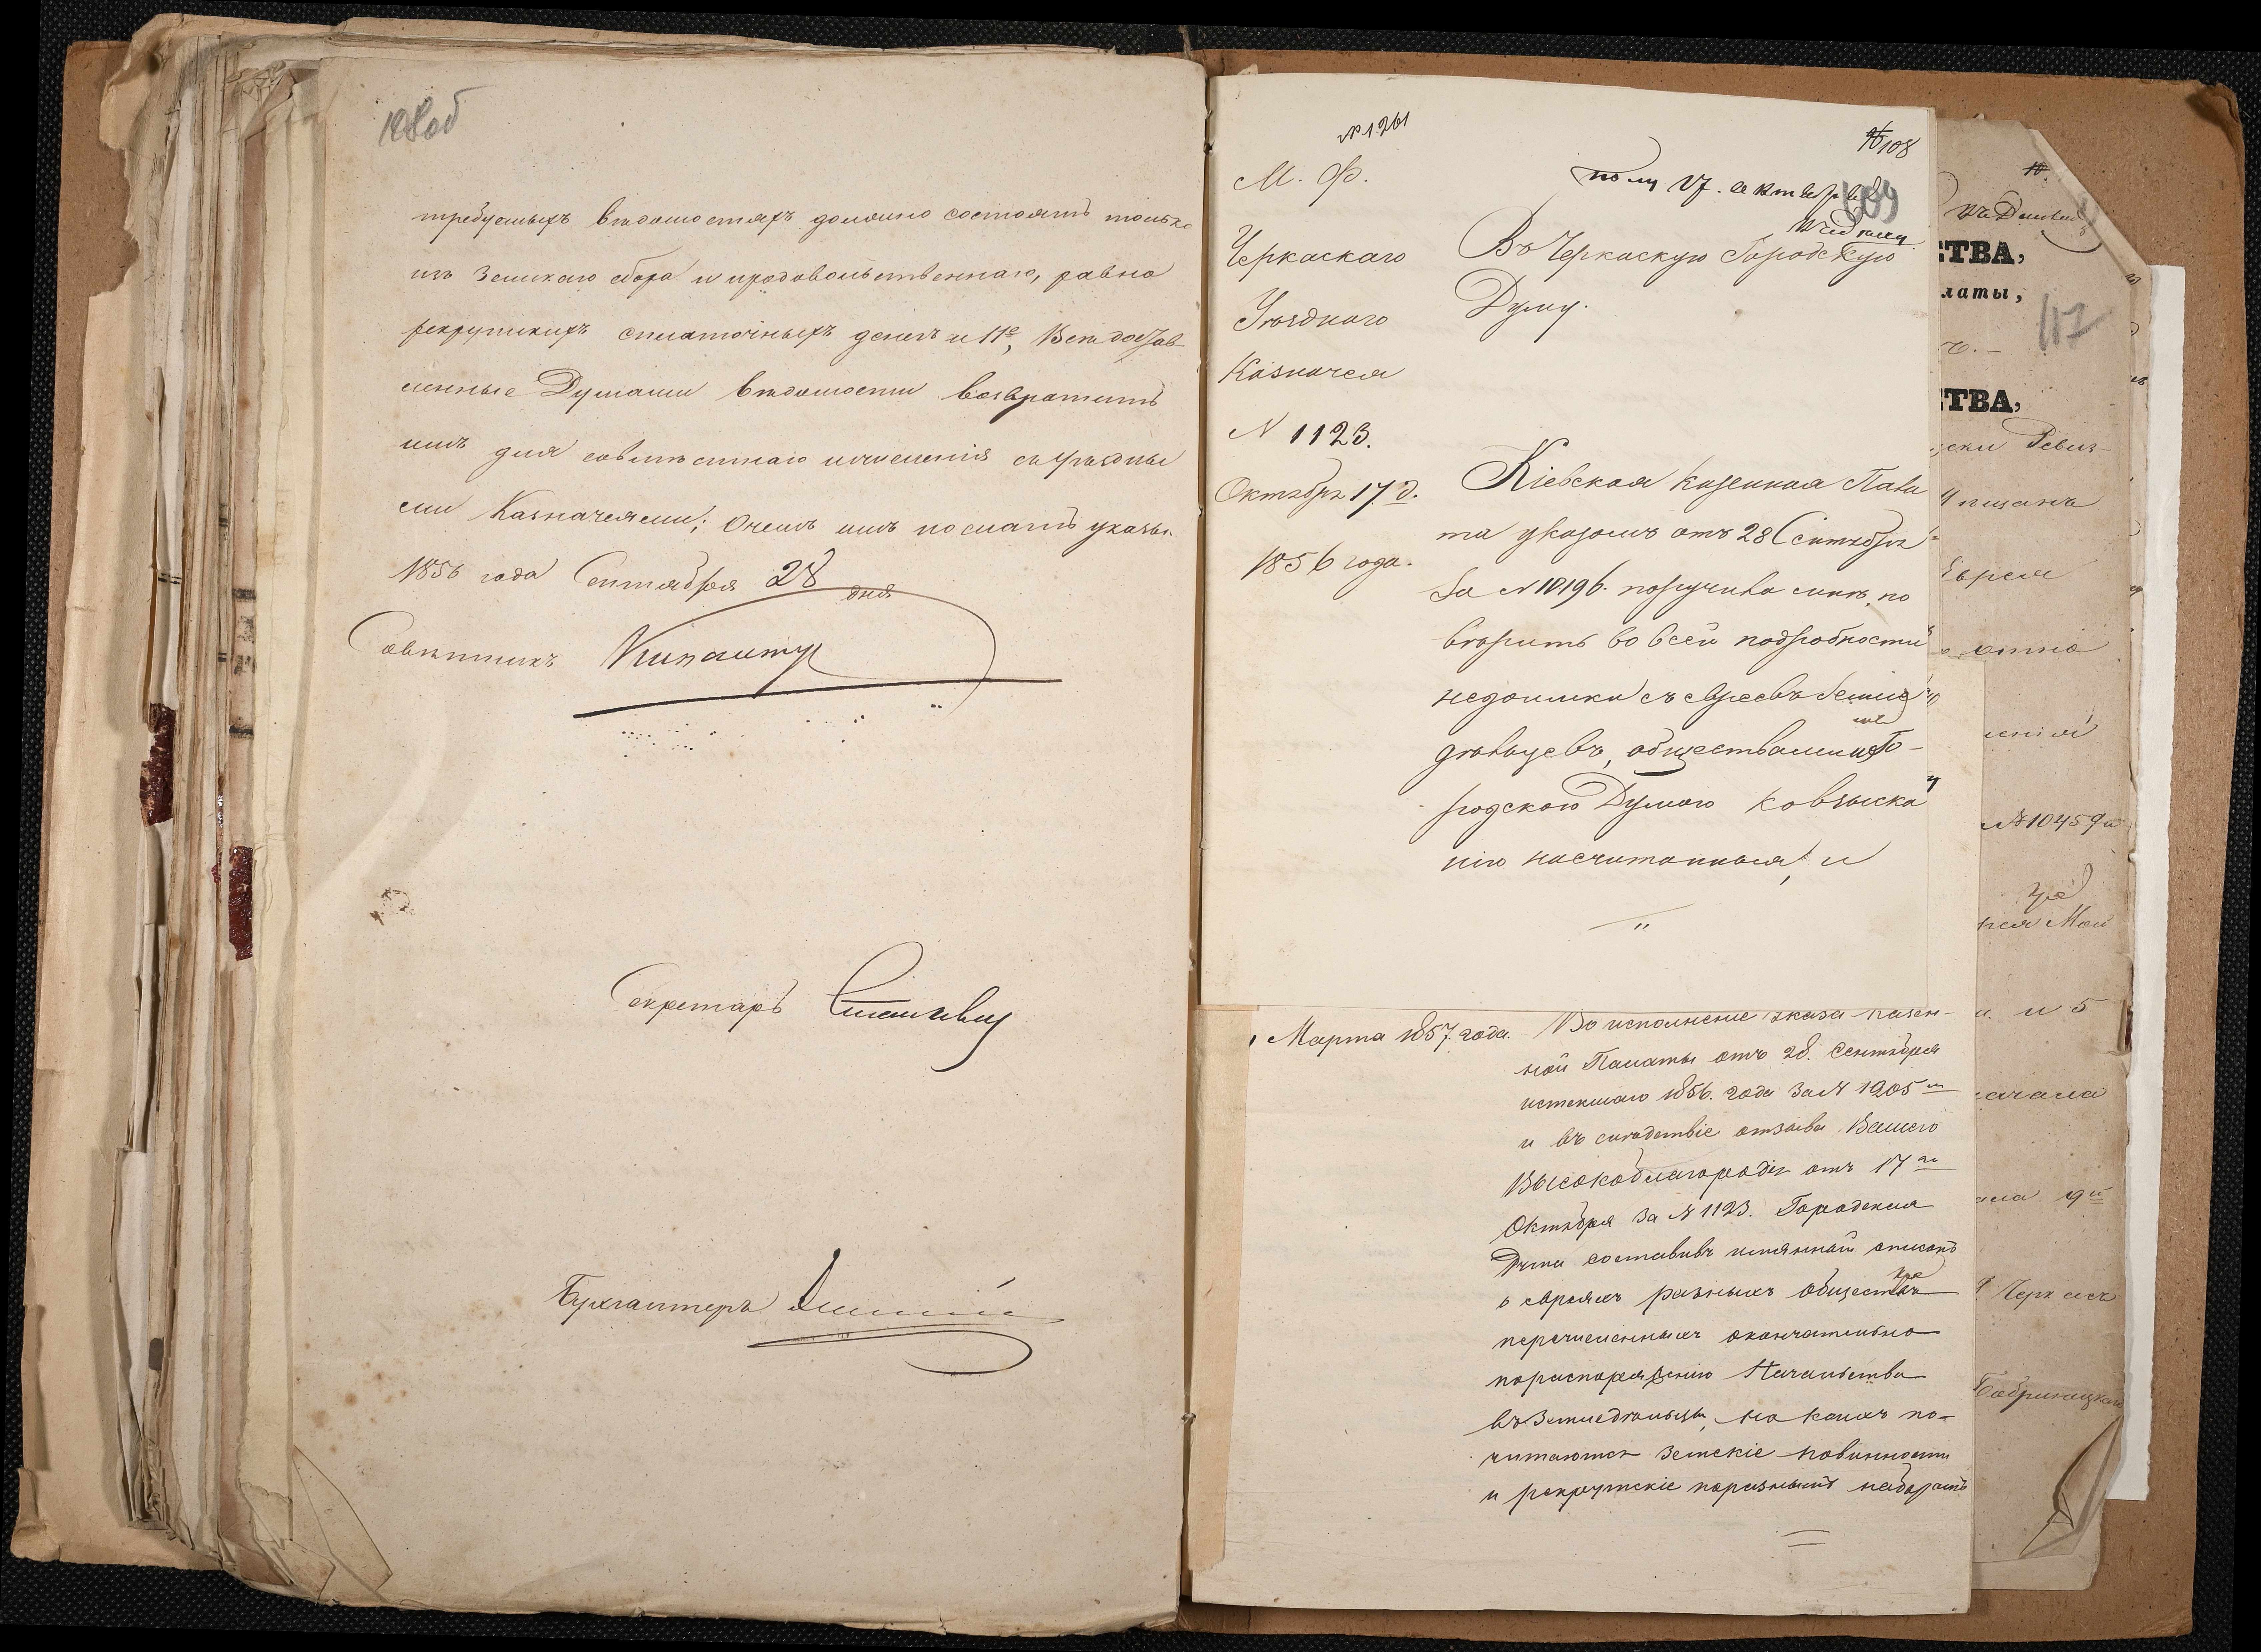 108об
требуемыхъ вѣдомостяхъ должно состоять только
изъ Земскаго сбора и продовольственнаго, равно
рекрутскихъ складочныхъ денегъ и 11е, Вск достав
ленные Думами вѣдомости возвратить
имъ для совмѣстнаго исчисленія съ Уѣздны
ми Казначеями; О чемъ имъ послать указы.
1856 года Сентября 28 дня
Совѣтникъ
Секретарь
Бухгалтеръ
№ 1261
108
М. Ф.
Черкаскаго
Уѣзднаго
Казначея
N 1123.
Октября 17 д.
1856 года.
полу 17. октября
109
Въ Черкаскую Городскую
Думу.
Кіевская Казенная Пала
та указомъ отъ 28 Сентября
за N 10196. поручила мнѣ, по
вѣрить во всей подробности
недоимки съ евреевъ земле
дѣльцевъ, обществами и Го-
родскою Думою ко взыска
нію насчитанныя, и
Марта 1857 года.
Во исполненіе указа Казен-
ной Палаты отъ 28. Сентября
истекшаго 1856. года за N 1205
и въ слѣдствіе отзыва Вашего
Высокоблагородія отъ 17го
Октября за N 1123. Городская
Дума составивъ имянной списокъ
о евреяхъ разныхъ обществъ
перечисленныхъ окончательно
по распоряженію Начальства
въ Земледѣльцы, на коихъ по-
читаются земскіе повинности
и рекрутскіе по разнымъ наборамъ
СТВА,
латы,
117
СТВА,
ски Ревиз-
Мѣщанъ
Еврея
№ 10459
и 5
начала
Черкасс
Бобринецкаго